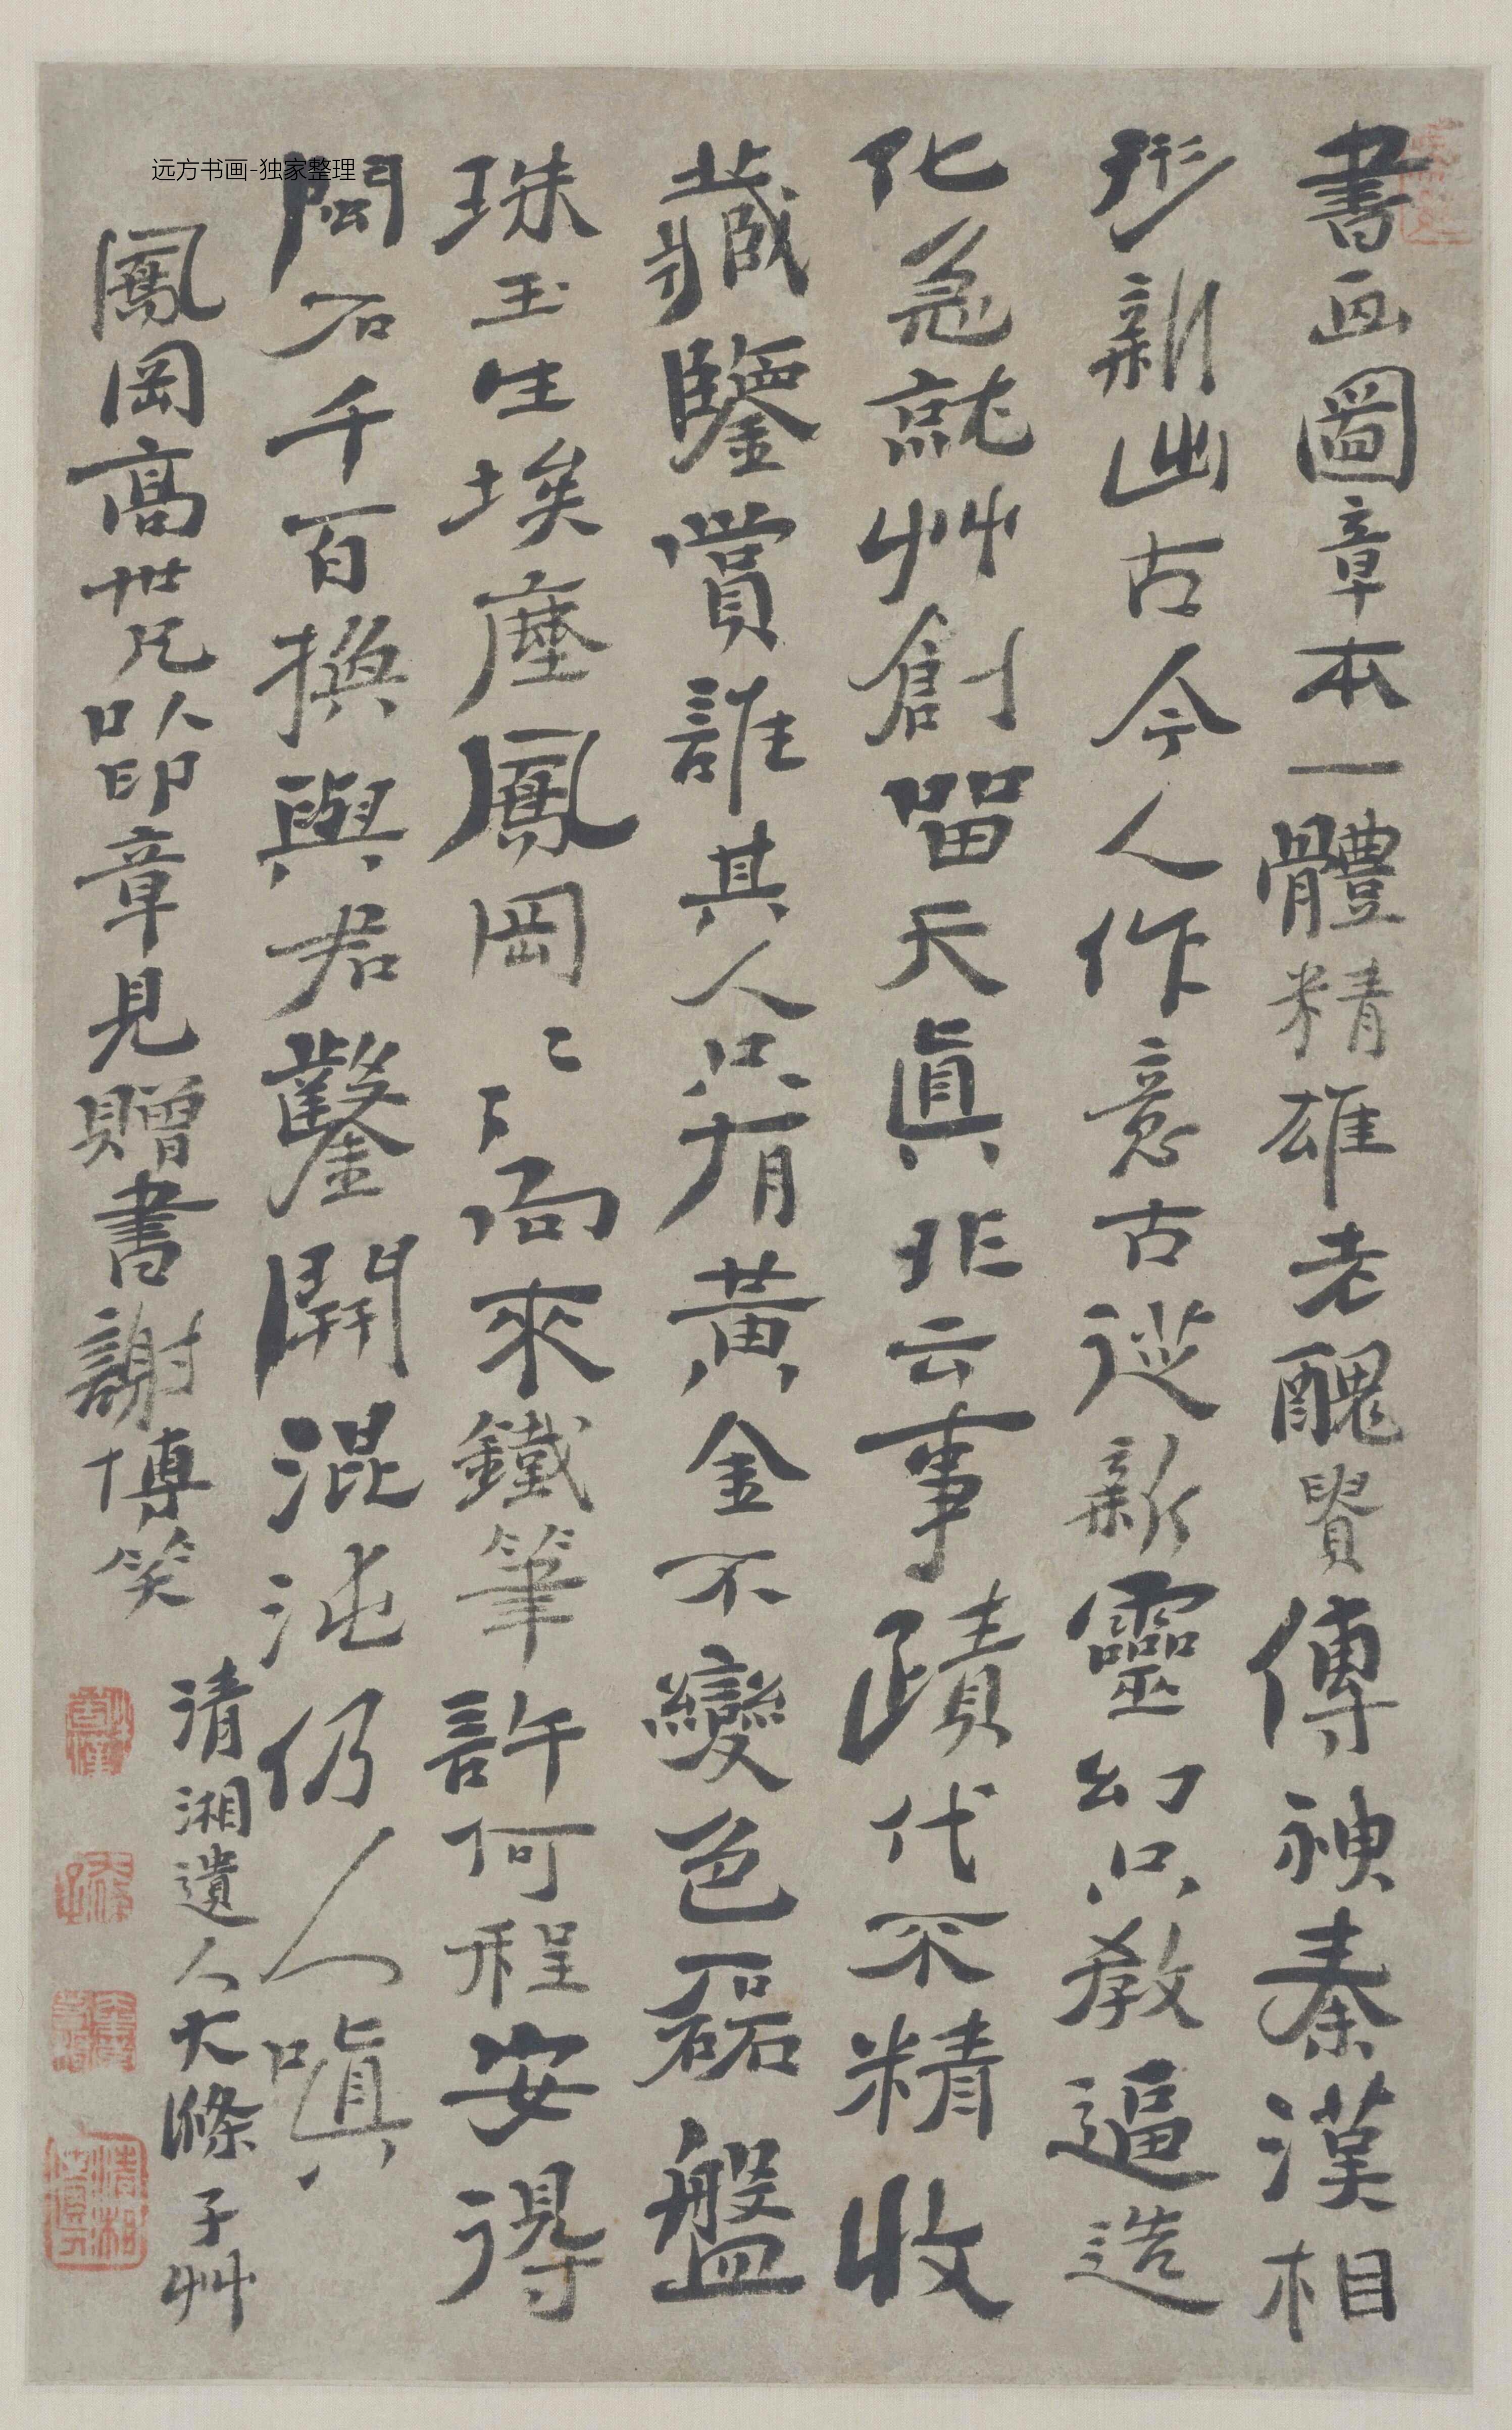 書画圖章本一體精雄老醜貴傳神秦漢相
形新出古今人作意古從新靈幻只教逼造
化急就艸創留天真非云事蹟代不精收
藏鑒賞誰其人只有黃金不變色磊盤
珠玉生埃塵鳳岡鳳岡向來鐵筆許何程安得
閩石千百換與君鑿開混沌仍人嗔
鳳岡高世兄以印章見贈書謝博笑
清湘遺人大滌子艸
远方书画-独家整理